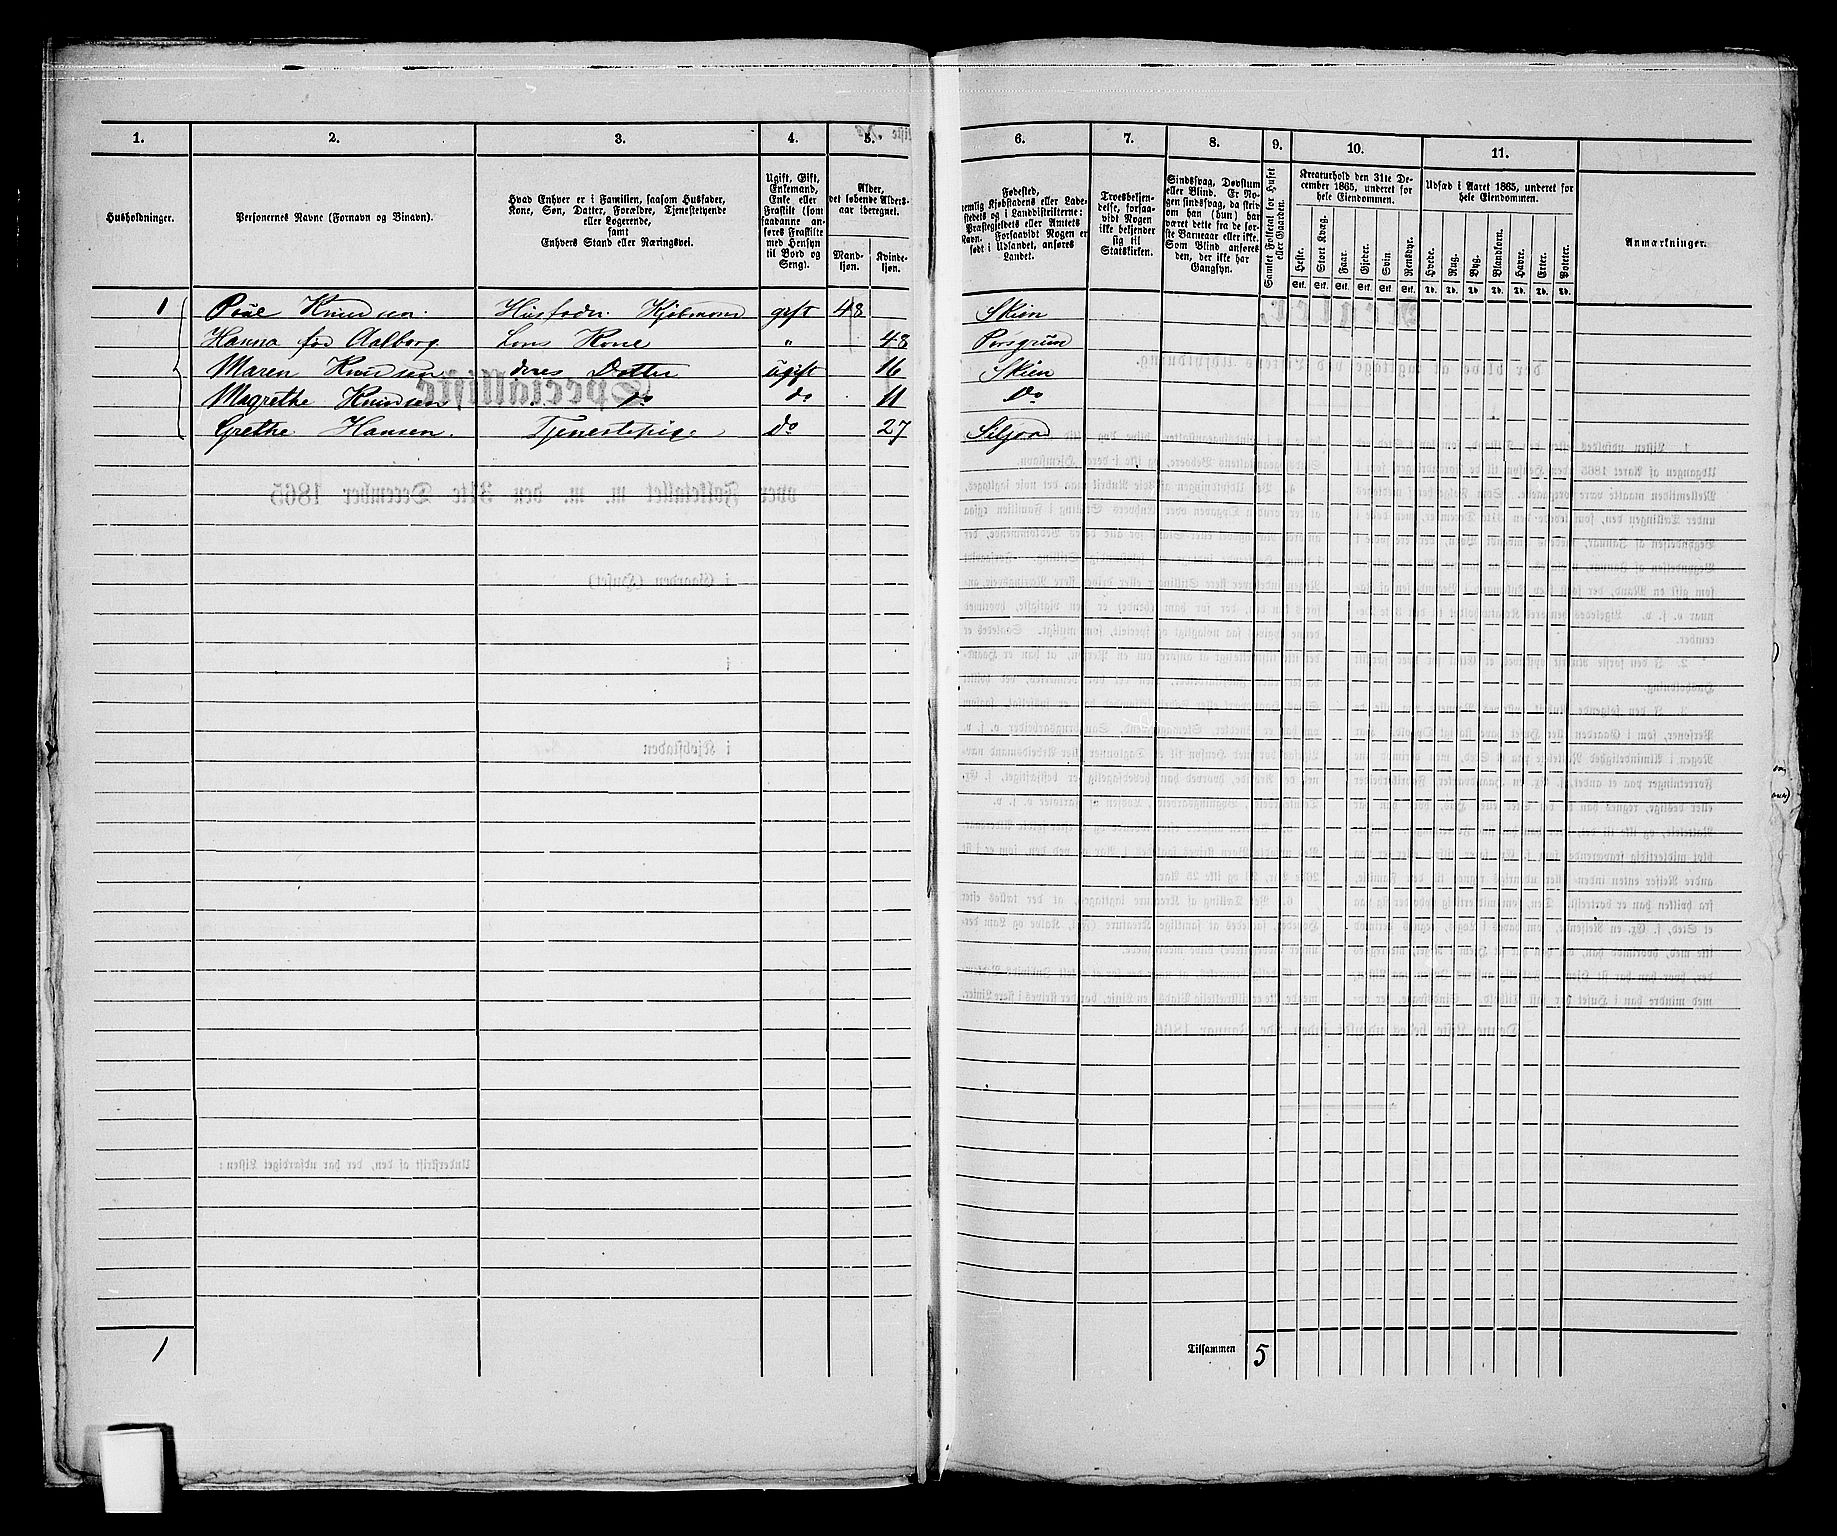 1. 2. 3. 4. 5. 6. 7. 8. 9. 10. 11.
Husholdninger.
Personernes Navne (Fornavn og Binavn).
Hvad Enhver er i Familien, saasom Husfader,
Kone, Søn, Datter, Forældre, Tjenestetyende
eller Logerende,
samt
Enhvers Stand eller Næringsvei.
Ugift, Gift,
Enkemand,
Enke eller
Fraskilt (som
saadanne an-
føres Fraskilte
med Hensyn
til Bord og
Seng).
Alder,
det løbende Alders-
aar iberegnet.
Mand-
kjøn.
Kvinde-
kjøn.
Fødested,
nemlig Kjøbstadens eller Lade-
stedets og i Landdistrikterne:
Præstegjeldets eller Amtets
Navn. Forsaavidt Nogen er
født i Udlandet, anføres
Landet.
Troesbekjen-
delse, forsaa-
vidt Nogen
ikke bekjender
sig til
Statskirken.
Sindssvag, Døvstum
eller Blind. Er No-
gen sindssvag, da skriv
om han (hun) har
været dette fra de før-
ste Barneaar eller ikke.
Som Blind anføres
den, der ikke har
Gangsyn.
Samlet Folketal for Huset
eller Gaarden.
Kreaturhold den 31te De-
cember 1865, underet for
hele Eiendommen.
Heste. Stort Kvæg. Faar. Gjeder. Svin. Rensdyr.
Stk. Stk. Stk. Stk. Stk. Stk.
Udsæd i Aaret 1865, underet for
hele Eiendommen.
Hvede. Rug. Byg. Blandkorn. Havre. Erter. Poteter.
Td. Td. Td. Td. Td. Td. Td.
Anmærkninger.
1 Povel Knudsen. Husfader Kjøbmand gift 48 Skien
Hanna fød Aalborg hans Kone " 48 Porsgrund
Maren Knudsen deres Datter ugift 16 Skien
Magrethe Knudsen do do 11 Do
Grethe Hansen. Tjenestepige Do 27 Siljord
1 Tilsammen 5